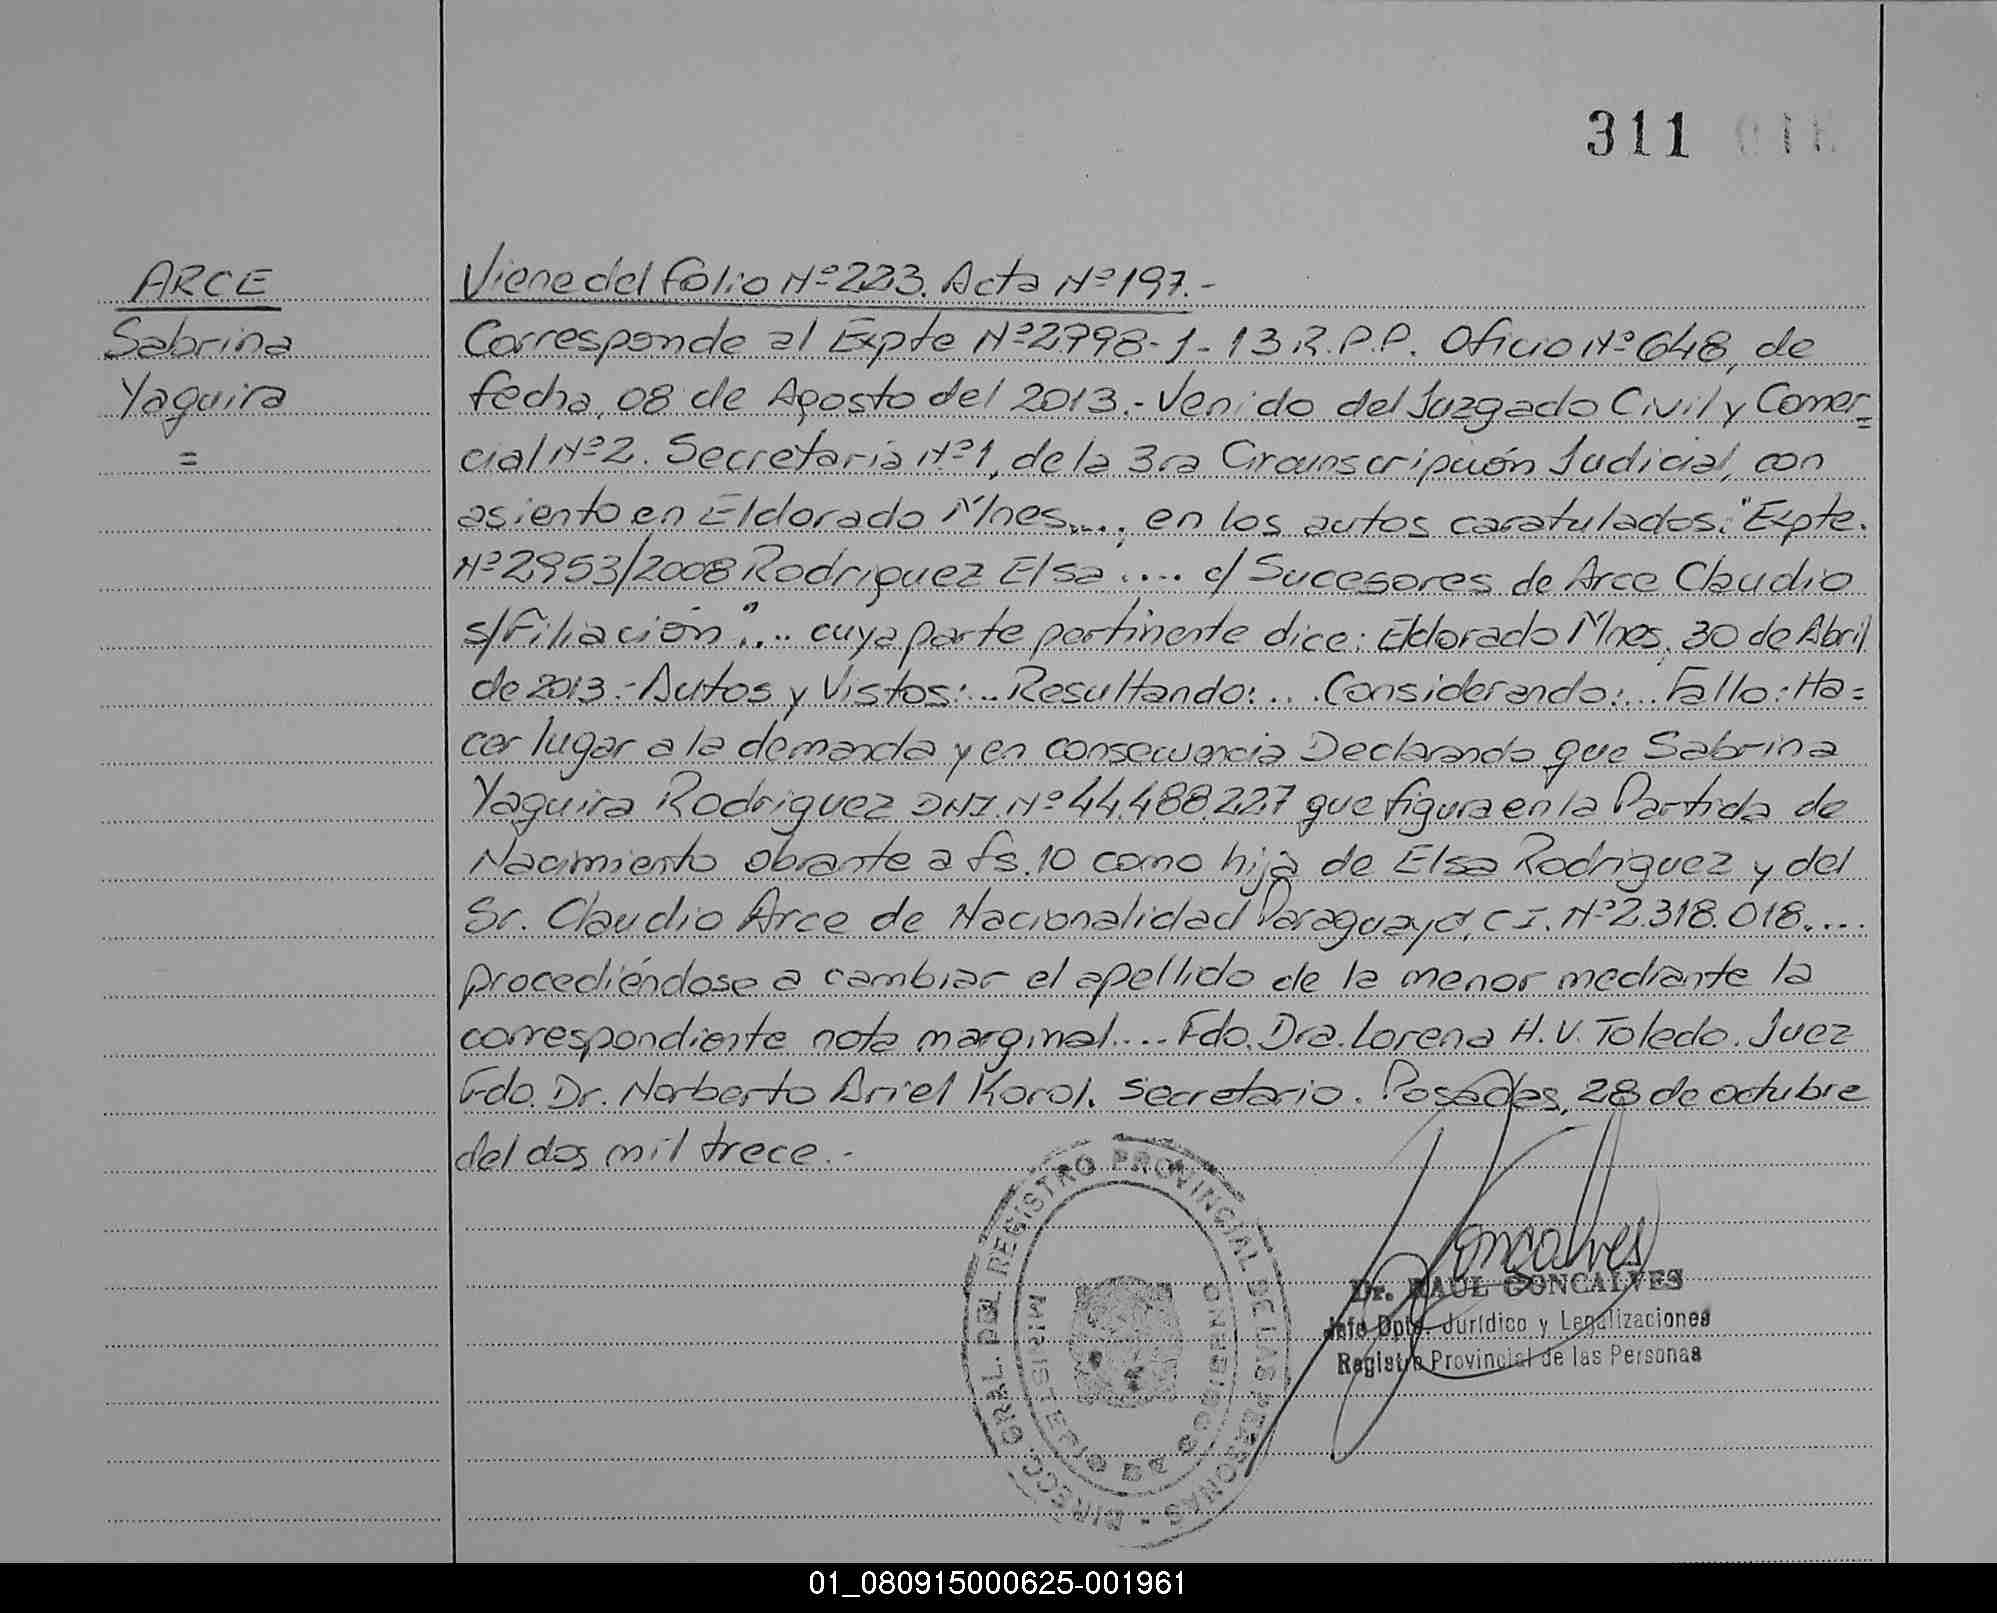 311
ARCE
Sabrina
Yaguira
=
Viene del folio Nº 223. Acta Nº 197.-
Corresponde al Expte Nº 2798-1-13 R.P.P. Oficio Nº 648, de
fecha, 08 de Agosto del 2013.- Venido del Juzgado Civil y Comer=
cial Nº 2. Secretaría Nº 1, de la 3ra Circunscripción Judicial, con
asiento en Eldorado Mnes...., en los autos caratulados: "Expte.
Nº 2953/2008 Rodriguez Elsa .... c/ Sucesores de Arce Claudio
s/Filiación".... cuya parte pertinente dice: Eldorado Mnes, 30 de Abril
de 2013.- Autos y Vistos:... Resultando:... Considerando:... Fallo: Ha=
cer lugar a la demanda y en consecuencia Declarando que Sabrina
Yaguira Rodriguez DNI. Nº 44.488.227 que figura en la Partida de
Nacimiento obrante a fs. 10 como hija de Elsa Rodriguez y del
Sr. Claudio Arce de Nacionalidad Paraguaya, C.I. Nº 2.318.018....
procediéndose a cambiar el apellido de la menor mediante la
correspondiente nota marginal.... Fdo. Dra. Lorena H. V. Toledo. Juez
Fdo. Dr. Norberto Ariel Korol. Secretario. Posadas, 28 de octubre
del dos mil trece.-
DIRECC. GRAL. DEL REGISTRO PROVINCIAL DE LAS PERSONAS -
MINISTERIO DE GOBIERNO
Goncalves
Dr. RAUL GONCALVES
Jefe Dpto. Jurídico y Legalizaciones
Registro Provincial de las Personas
01_080915000625-001961